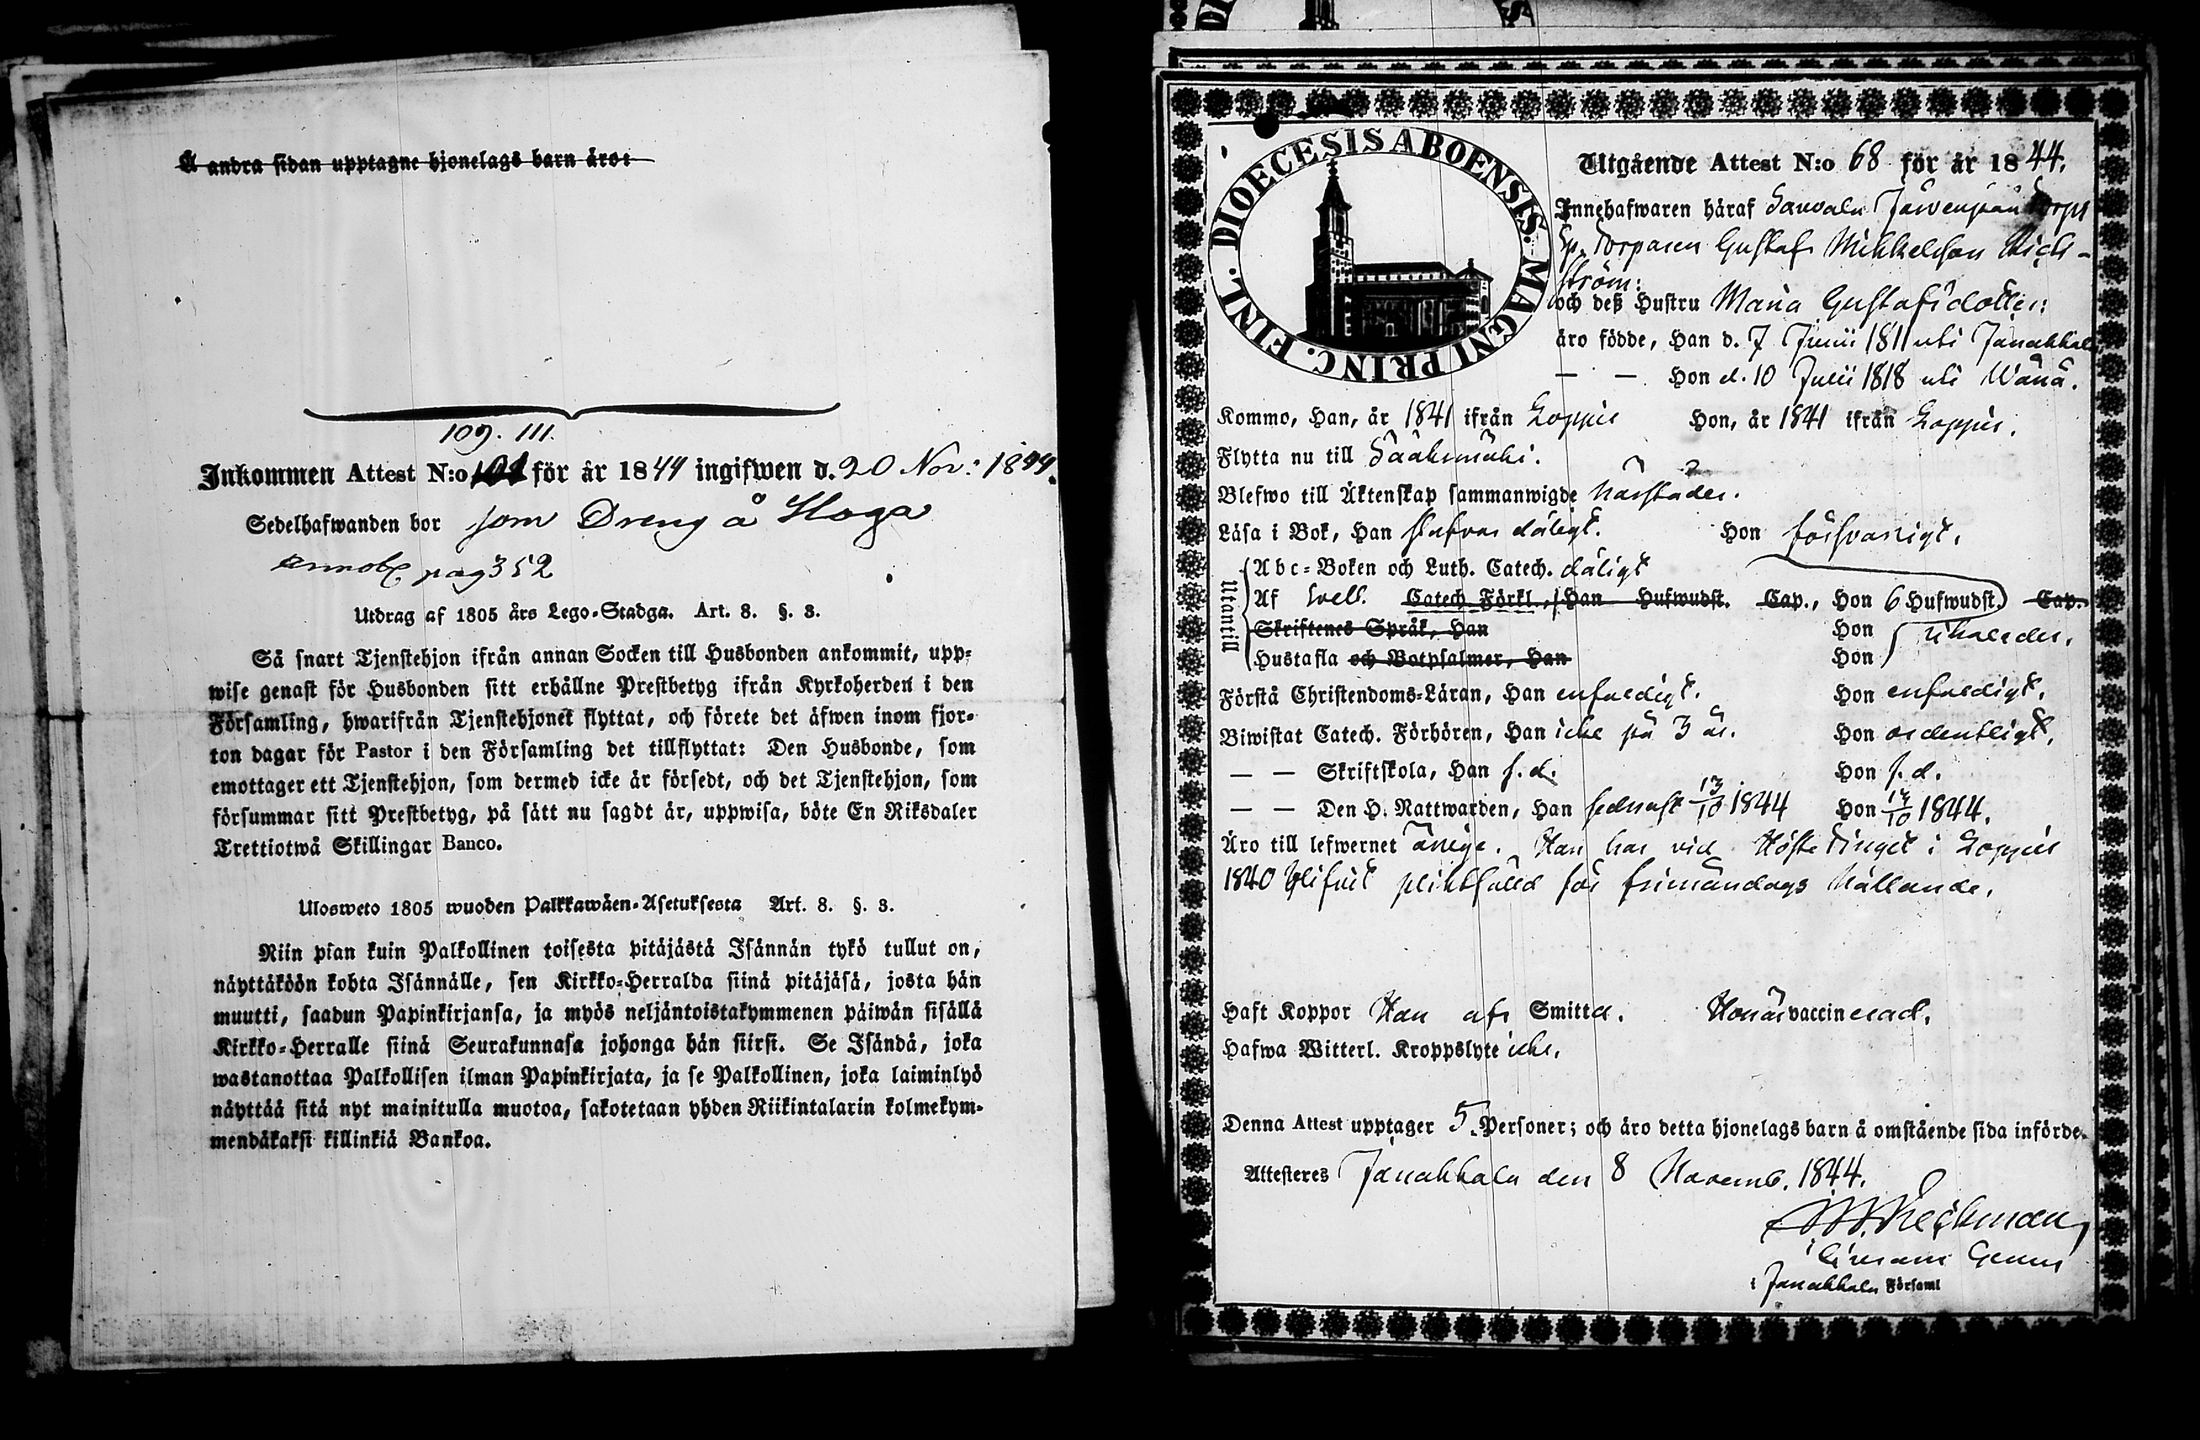 A andra sidan upptagne hjonelags barn äro:
109. 111.
Inkommen Attest N:o för år 1844 ingifwen d. 20 Nov: 1844.
Sedelhafwanden bor som Dreng å Haga
pag 352
Utdrag af 1805 års Lego-Stadga. Art. 8. §. 3.
Så snart Tjenstehjon ifrån annan Socken till Husbonden ankommit, upp-
wise genast för Husbonden sitt erhållne Prestbetyg ifrån Kyrkoherden i den
Församling, hwarifrån Tjenstehjonet flyttat, och förete det äfwen inom fjor-
ton dagar för Pastor i den Församling det tillflyttat: Den Husbonde, som
emottager ett Tjenstehjon, som dermed icke är försedt, och det Tjenstehjon, som
försummar sitt Prestbetyg, på sätt nu sagdt är, uppwisa, böte En Riksdaler
Trettiotwå Skillingar Banco.
Ulosweto 1805 wuoden Palkkawäen-Asetuksesta Art. 8. §. 3.
Niin pian kuin Palkollinen toisesta pitäjästä Isännän tykö tullut on,
näyttäköön kohta Isännälle, sen Kirkko-Herralda siinä pitäjäsä, josta hän
muutti, saadun Papinkirjansa, ja myös neljäntoistakymmenen päiwän sisällä
Kirkko-Herralle siinä Seurakunnasa johonga hän siirsi. Se Isändä, joka
wastanottaa Palkollisen ilman Papinkirjata, ja se Palkollinen, joka laiminlyö
näyttää sitä nyt mainitulla muotoa, sakotetaan yhden Riikintalarin kolmekym-
mendäkaksi killinkiä Bankoa.
DIOECESIS ABOENSIS. MAGNI PRINC. FINL.
Utgående Attest N:o 68 för år 1844.
Innehafwaren häraf Sauvala Järvenpää Torps
Torparen Gustaf Mikkelsson
ström:
och deß Hustru Maria Gustafsdotter:
äro födde, Han d. 7 Junii 1811 uti Janakkala
— — Hon d. 10 Julii 1818 uti Wånå.
Kommo, Han, år 1841 ifrån Loppis Hon, år 1841 ifrån Loppis.
Flytta nu till Sääksmäki.
Blefwo till Äktenskap sammanwigde härstädes.
Läsa i Bok, Han stafvar dåligt. Hon försvarligt.
Utantill
Abc-Boken och Luth. Catech. dåligt
Af Sveb. Catech Förkl., Han Hufwudst. Cap., Hon 6 Hufwudst. Cap.
Skriftenes Språk, Han Hon
Hustafla och Botpsalmer, Han Hon
Förstå Christendoms-Läran, Han enfaldigt. Hon enfaldigt.
Biwistat Catech. Förhören, Han icke på 3 år. Hon ordentligt.
— — Skriftskola, Han s. d. Hon s. d.
— — Den H. Nattwarden, Han sednast 13/10 1844 Hon 13/10 1844.
Äro till lefwernet ärlige. Han har vid Höste Tinget i Loppis
1840 blifvit plikthfäld för frimåndags hållande.
Haft Koppor Han af Smitta. Hon är vaccinerad.
Hafwa Witterl. Kroppslyte icke.
Denna Attest upptager 5. Personer; och äro detta hjonelags barn å omstående sida införde.
Attesteres Janakkala den 8 Novemb. 1844.
i Janakkala Församl